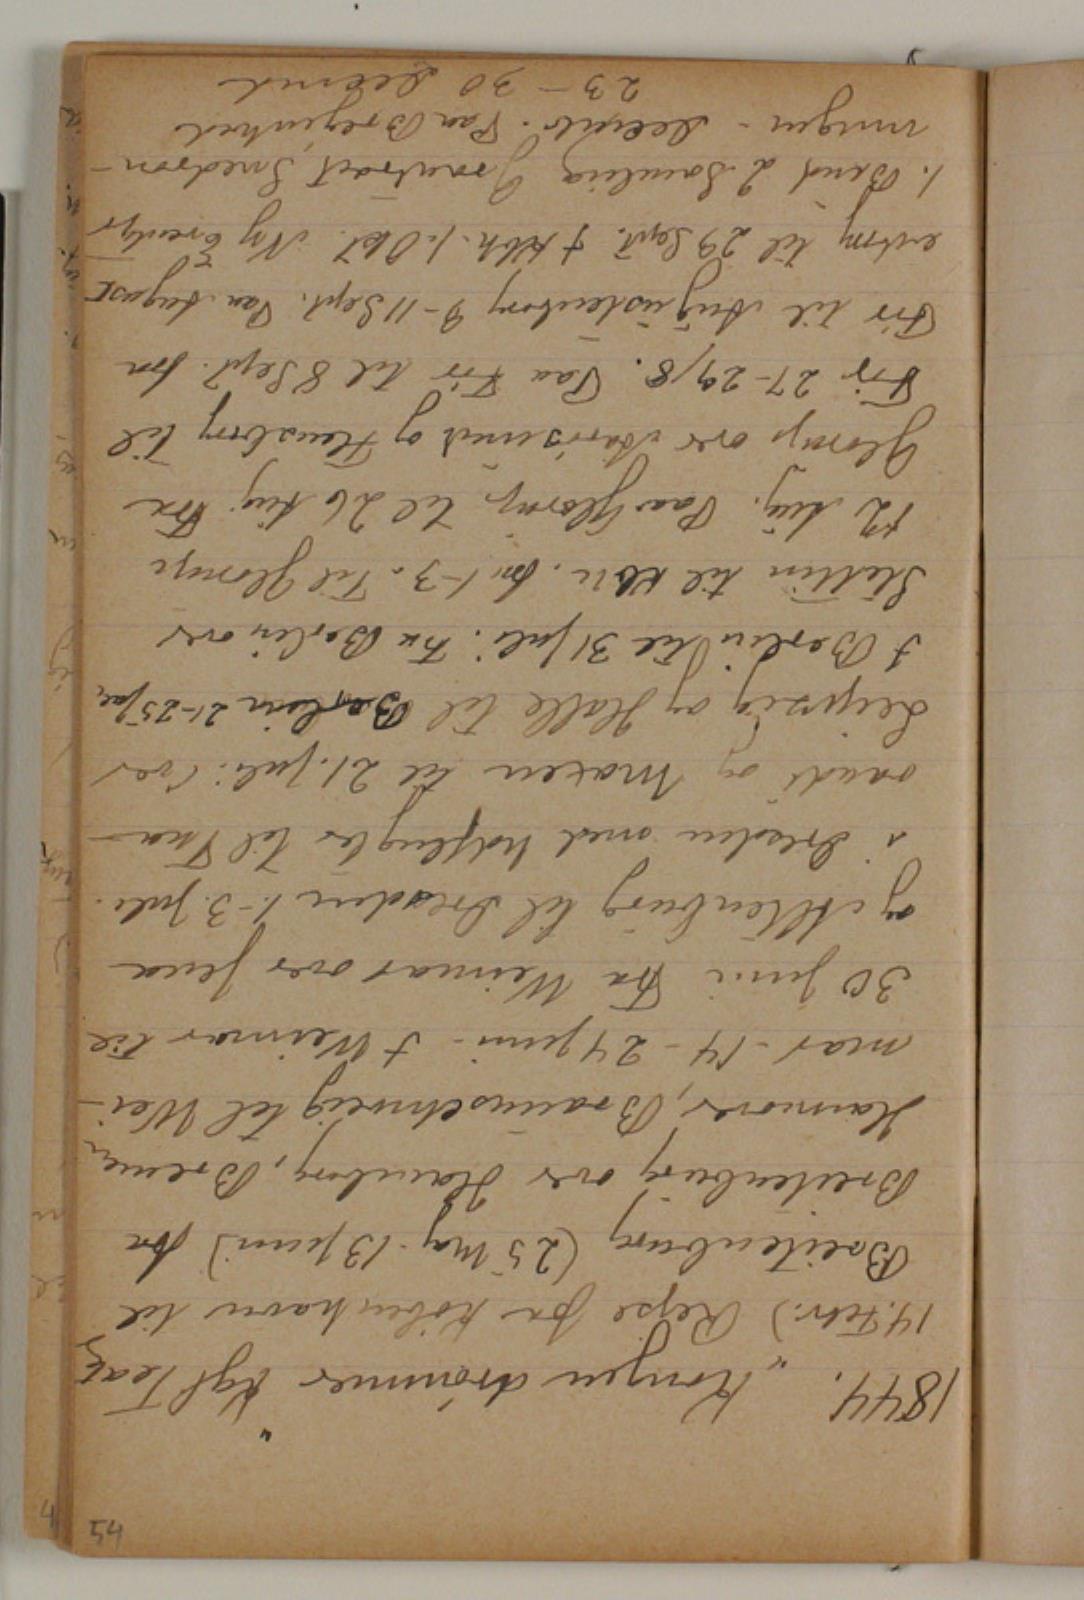 45
1844. "Kongen drømmer" Kgl Teat.
14. Febr.) Rejse fra København til
Breitenburg (25 Maj - 13 juni) fra
Breitenburg over Hamborg, Bremen,
Hannover, Braunschweig til Wei-
mar - 14 - 24 juni - I Weimar til
30 juni Fra Weimar over Jena
og Altenburg til Dresden 1-3. juli.
i Dresden med
og Maxen til 21. juli. Over
Leipzig og Halle til Berlin 21-25 juli
I Berlin til 31 juli. Fra Berlin over
Stettin til Kbh. 1-3. Til Glorup
12 Aug. Paa Glorup til 26 Aug. Fra
Glorup over Aarøsund og Flensborg til
Før 27-29/8. Paa Før til 8 Sept. fra
Før til Augustenborg 9-11 Sept. Paa August
enborg til 29 Sept. I Kbh. 1. Okt. Ny Eventyr
1. Bind 2 Samling Grantræet Snedron-
ningen - Decbr. Paa Bregentved
23 - 30 Decbr